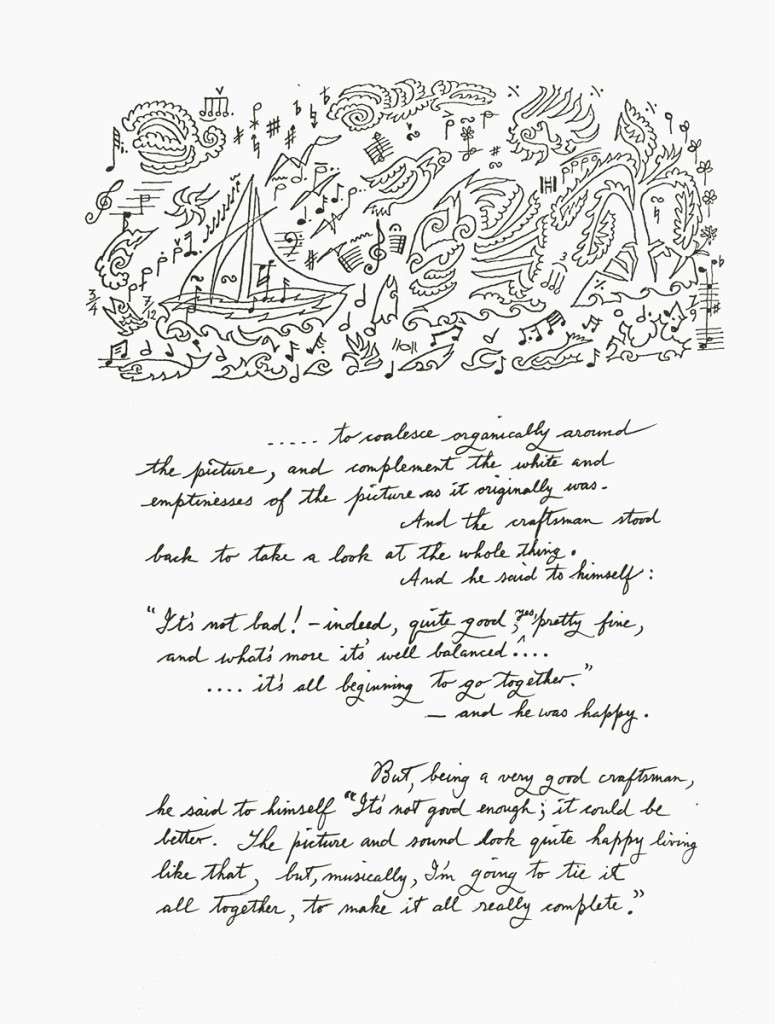 3/4
7/12
3
7/9
..... to coalesce organically around
the picture, and complement the white and
emptinesses of the picture as it originally was.
And the craftsman stood
back to take a look at the whole thing.
And he said to himself:
"It's not bad! – indeed, quite good, yes, pretty fine,
and what's more it's well balanced ....
.... it's all beginning to go together."
— and he was happy.
But, being a very good craftsman,
he said to himself "It's not good enough; it could be
better. The picture and sound look quite happy living
like that, but, musically, I'm going to tie it
all together, to make it all really complete."